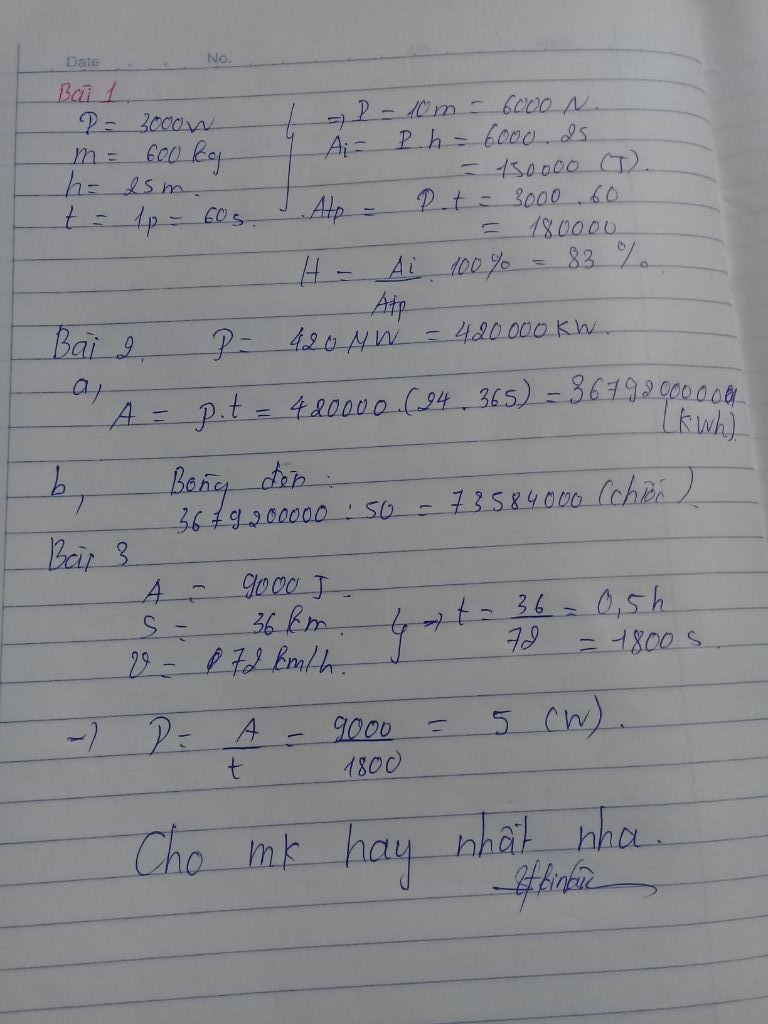 Date No.
Bài 1
P = 3000W
m = 600 kg
h = 25m.
t = 1p = 60s.
=> P = 10m = 6000 N.
Ai = P.h = 6000 . 25
= 150000 (J).
Atp = P.t = 3000 . 60
= 180000
H = Ai/Atp . 100% = 83 %
Bài 2. P = 420 MW = 420000 KW.
a,
A = P.t = 420000.(24 . 365) = 3679200000
(Kwh)
b, Bóng đèn :
3679200000 : 50 = 73584000 (chiếc)
Bài 3
A = 9000 J
S = 36 km.
v = 72 km/h.
=> t = 36/72 = 0,5h
= 1800 s.
-> P = A/t = 9000/1800 = 5 (W).
Cho mk hay nhất nha.